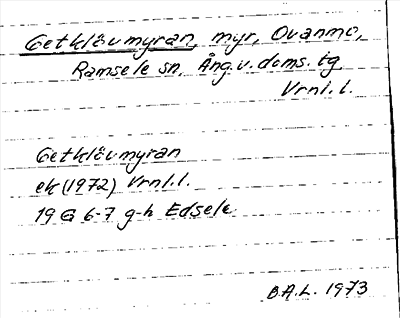 Getklövmyran, myr, Ovanmo,
Ramsele sn, Ång.v. doms. tg
Vrnl.l.
Getklövmyran
ek (1972) Vrnl.l.
19 G 6-7 g-h Edsele
B.A.L. 1973